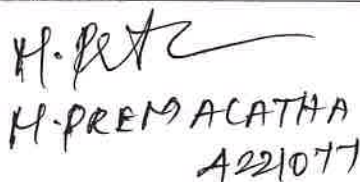 M. PREMALATHA
A221077